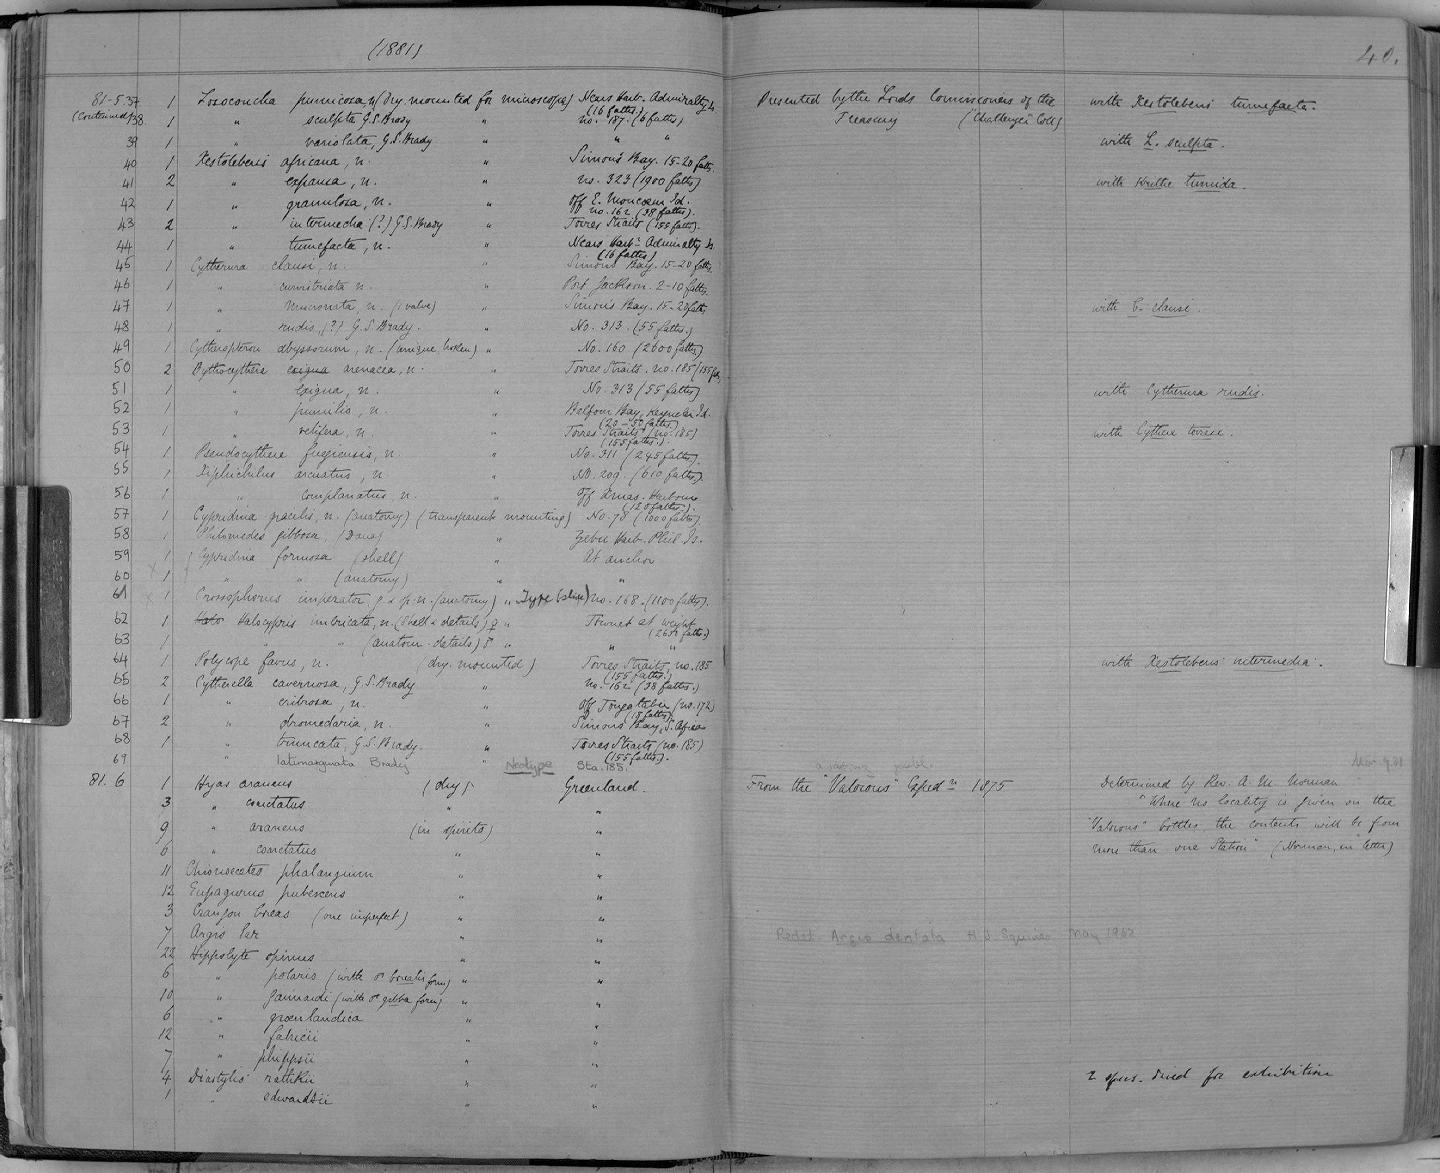 (1881)
40.
81-5.37 1 Loxoconcha pumicosa, n. (dry. mounted for microscope) Nears Harb. Admiralty Is. (16 faths.) Presented by the Lords Comissioners of the with Xestoleberis tumefacta.
(Continued) 38 1 " sculpta G.S. Brady " no. 187. (6 faths) Treasury ("Challenger" Coll)
39 1 " variolata, G.S. Brady " " " with L. sculpta.
40 1 Xestoleberis africana, n. " Simon's Bay. 15-20 faths.
41 2 " expansa, n. " no. 323 (1900 faths) with Krithe tumida.
42 1 " granulosa, n. " off E. Moncoeur Id. no. 162 (38 faths).
43 2 " intermedia (?) G.S. Brady " Torres Straits (155 faths).
44 1 " tumefacta, n. " Nears Harbr. Admiralty Is. (16 faths)
45 1 Cytherura clausi, n. " Simon's Bay. 15-20 faths
46 1 " curvistriata n. " Port Jackson. 2-10 faths.
47 1 " mucronata, n. (1 valve) " Simon's Bay. 15-20 faths with C. clausi.
48 1 " rudis, (?) G.S. Brady. " No. 313. (55 faths.)
49 1 Cytheropteron abyssorum, n. (unique broken) " No. 160 (2600 faths)
50 2 Bythocythere exigua arenacea, n. " Torres Straits. no. 185 (155 fths)
51 1 " exigua, n. " No. 313 (55 faths) with Cytherura rudis.
52 1 " pumilis, n. " Balfour Bay, Kerguelen Id. (20-50 faths.)
53 1 " velifera, n. " Torres Straits (no. 185) (155 faths.). with Cythere torresi.
54 1 Pseudocythere fuegiensis, n. " No. 311 (245 faths).
55 1 Xiphichilus arcuatus, n. " No. 209. (610 faths).
56 1 " complanatus, n. " Off Xmas. Harbour (120 faths.).
57 1 Cypridina gracilis, n. (anatomy) (transparent mounting) No. 78 (1000 faths)
58 1 Philomedes gibbosa, (Dana) " Zebu Harb. Phil Is.
59 1 Cypridina formosa (shell) " At anchor
60 1 " " (anatomy) " "
61 1 Crossophorus imperator, g. & sp. n. (anatomy) " Type (slide) No. 168. (1100 faths).
62 1 Halo Halocypris imbricata, n. (Shell & details) ♀ " Townet at weight (2650 faths)
63 1 " " (anatom. details) ♂ " " "
64 1 Polycope favus, n. (dry. mounted) Torres Straits, no. 185 (155 faths.) with Xestoleberis intermedia.
65 2 Cytherella cavernosa, G.S. Brady " no. 162 (38 faths.)
66 1 " cribrosa, n. " Off Tongatabu (no. 172) (18 faths)
67 2 " dromedaria, n. " Simons Bay, S. Africa
68 1 " truncata, G.S. Brady. " Torres Straits (no. 185) (155 faths).
69 " latimarginata Brady " Neotype Sta. 185.
81. 6 1 Hyas araneus (dry) Greenland. From the "Valorous" Expedn 1875 Determined by Rev. A. M. Norman
3 " coarctatus " " "Where no locality is given on the
9 " araneus (in spirits) " "Valorous" bottles the contents will be from
6 " coarctatus " " more than one Station" (Norman, in letter)
11 Chionoecetes phalangium " "
12 Eupagurus pubescens " "
3 Crangon boreas (one imperfect) " "
7 Argis lar " " Redet. Argis dentata H J Squires May 1962
22 Hippolyte spinus " "
6 " polaris (with ♂ borealis form) " "
10 " gaimardi (with ♂ gibba form) " "
6 " groenlandica " "
12 " fabricii " "
7 " phippsii " "
4 Diastylis rathkii " " 2 spns. dried for exhibition
1 " edwardsii " "